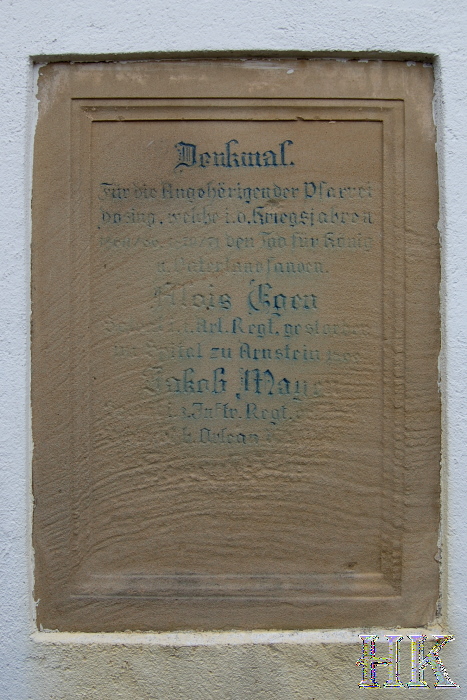 Denkmal.
Für die Angehörigen der Pfarrei
welche i. d. Kriegsjahren
den Tod für König
u. Vaterland fanden.
Alois Egen
Art. Regt. gestorben
im Spital zu Arnstein
Jakob May
Inftr. Regt.
b. Orlean
HK